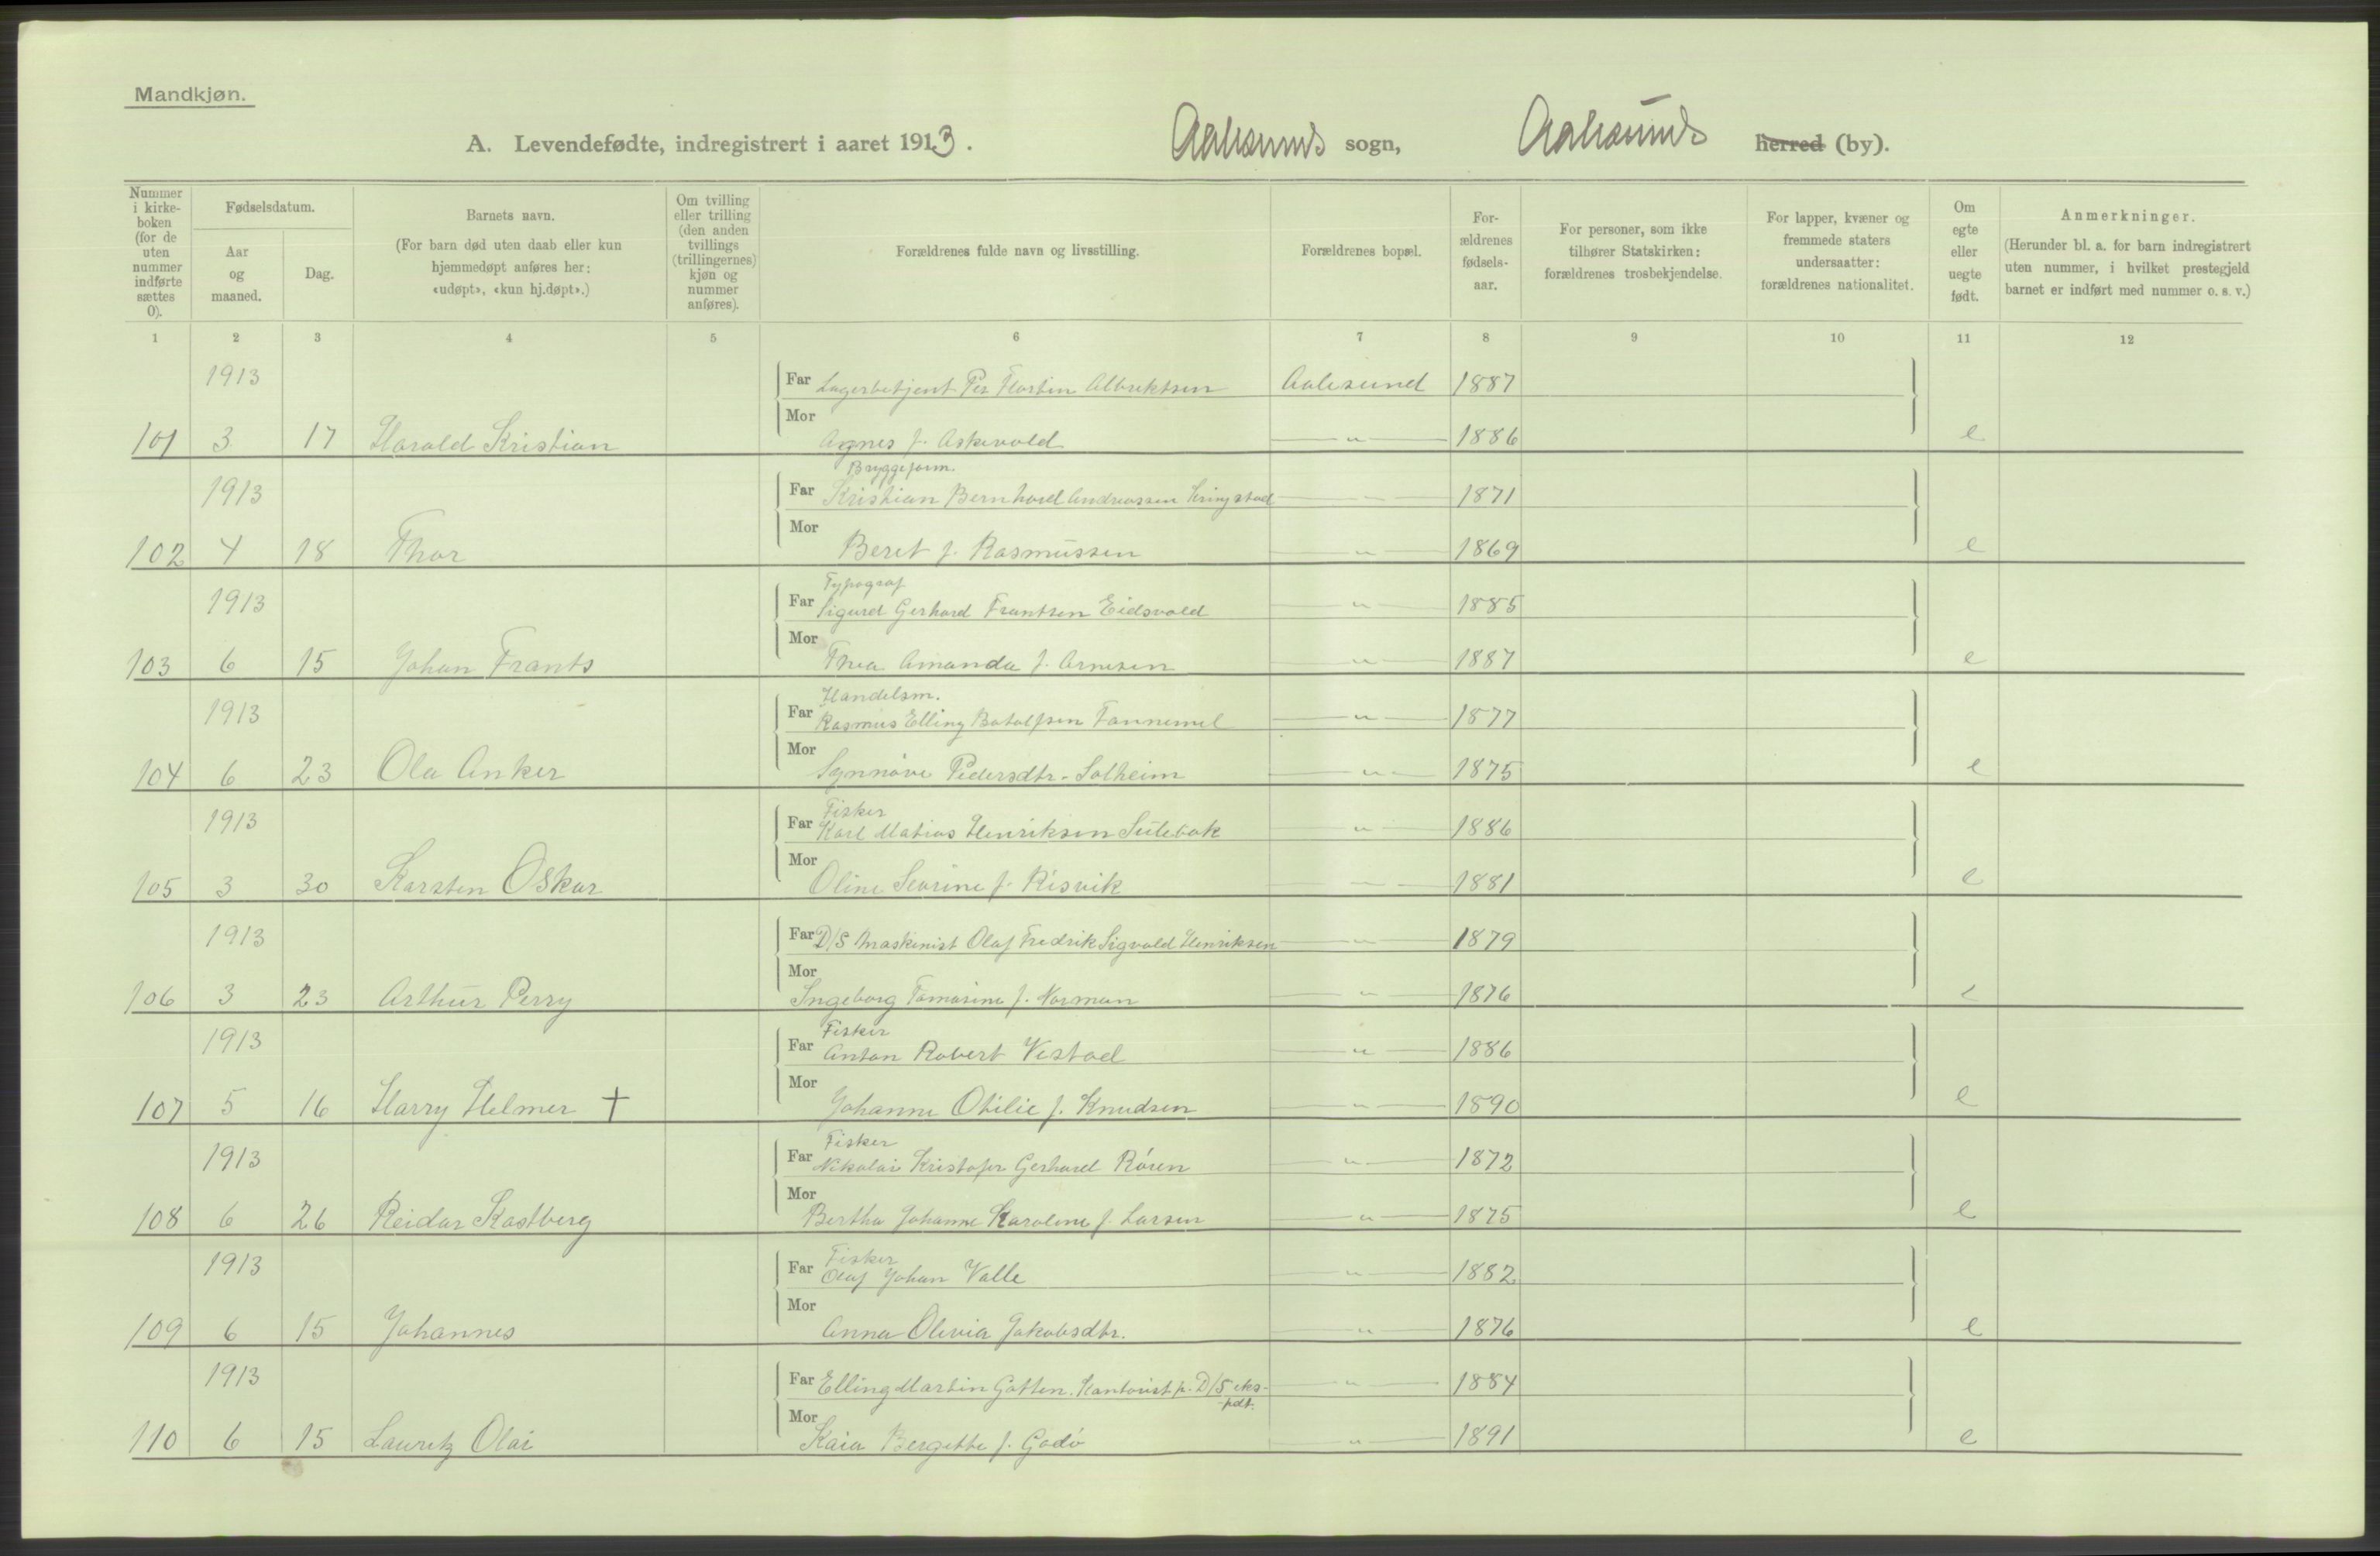 Mandkjøn.
A. Levendefødte, indregistrert i aaret 1913. Aalesunds sogn, Aalesunds herred (by).
Nummer i kirke-boken (for de uten nummer indførte sættes 0).
Fødselsdatum.
Aar og maaned.
Dag.
Barnets navn.
(For barn død uten daab eller kun hjemmedøpt anføres her: «udøpt», «kun hj.døpt».)
Om tvilling eller trilling (den anden tvillings (trillingernes) kjøn og nummer anføres).
Forældrenes fulde navn og livsstilling.
Forældrenes bopæl.
For-ældrenes fødsels-aar.
For personer, som ikke tilhører Statskirken: forældrenes trosbekjendelse.
For lapper, kvæner og fremmede staters undersaatter: forældrenes nationalitet.
Om egte eller uegte født.
Anmerkninger.
(Herunder bl. a. for barn indregistrert uten nummer, i hvilket prestegjeld barnet er indført med nummer o. s. v.)
1 2 3 4 5 6 7 8 9 10 11 12
1913 Far Lagerbetjent Per Martin Albriktsen Aalesund 1887
101 3 17 Harald Kristian Mor Agnes f. Askevold — " — 1886 e
Bryggeform.
1913 Far Kristian Bernhard Andreassen Kringstad — " — 1871
102 4 18 Thor Mor Beret f. Rasmussen — " — 1869 e
Typograf
1913 Far Sigurd Gerhard Frantsen Eidsvold — " — 1885
103 6 15 Johan Frants Mor Thea Amanda f. Arnesen — " — 1887 e
Handelsm.
1913 Far Rasmus Elling Botolfsen — " — 1877
104 6 23 Ola Anker Mor Synnöve Pedersdtr. Solheim — " — 1875 e
Fisker
1913 Far Karl Matias Henriksen Sulebak — " — 1886
105 3 30 Karsten Oskar Mor Oline Sevrine f. Risvik — " — 1881 e
1913 Far D/S Maskinist Olaf Fredrik Sigvald Henriksen — " — 1879
106 3 23 Arthur Perry Mor Ingeborg Tomasine f. Norman — " — 1876 e
Fisker
1913 Far Anton Robert Vestad — " — 1886
107 5 16 Harry Helmer † Mor Johanne Otilie f. Knudsen — " — 1890 e
Fisker
1913 Far Nikolai Kristofer Gerhard Rören — " — 1872
108 6 26 Reidar Kastberg Mor Bertha Johanne Karoline f. Larsen — " — 1875 e
Fisker
1913 Far Olaf Johan Valle — " — 1882
109 6 15 Johannes Mor Anna Olivia Jakobsdtr. — " — 1876 e
1913 Far Elling Martin Gotten. Kontorist p. D/S eks- — " — 1884
-pdt.
110 6 15 Lauritz Olai Mor Kaia Bergitte f. Godö — " — 1891 e